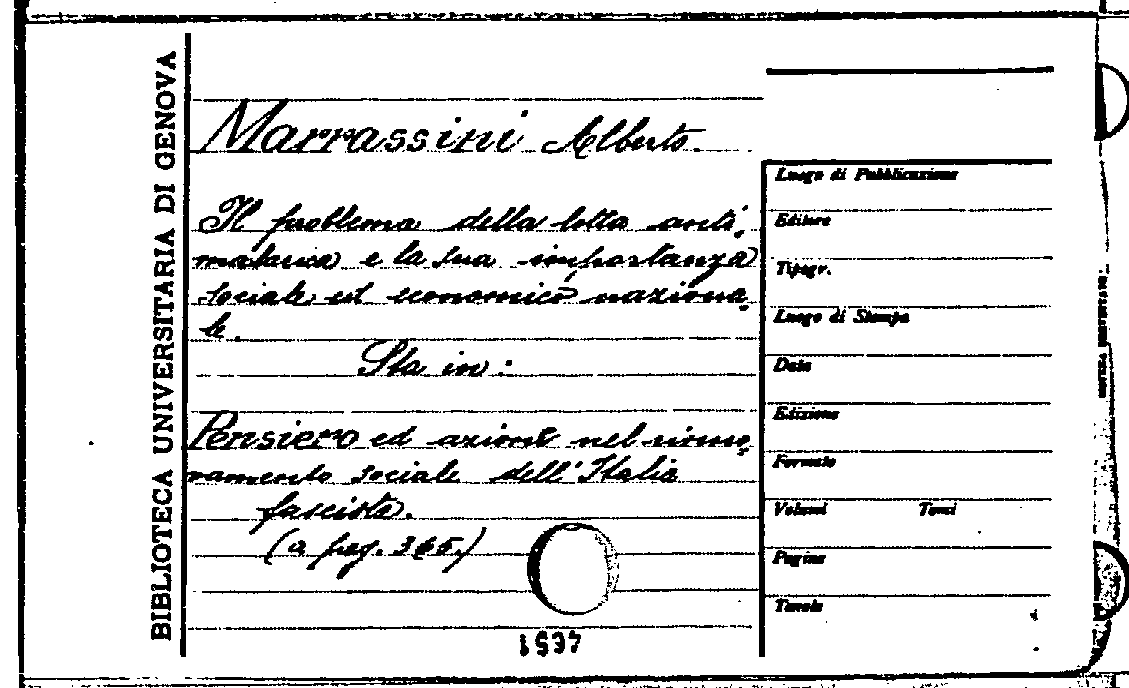 BIBLIOTECA UNIVERSITARIA DI GENOVA
Marrassini Alberto.
Il problema della lotta anti-
malarica e la sua importanza
sociale ed economico naziona-
le.
Sta in:
Pensiero ed azione nel rinno-
vamento sociale dell'Italia
fascista.
(a pag. 365.)
Luogo di Pubblicazione
Editore
Tipogr.
Luogo di Stampa
Data
Edizione
Formato
Volumi Tomi
Pagine
Tavole